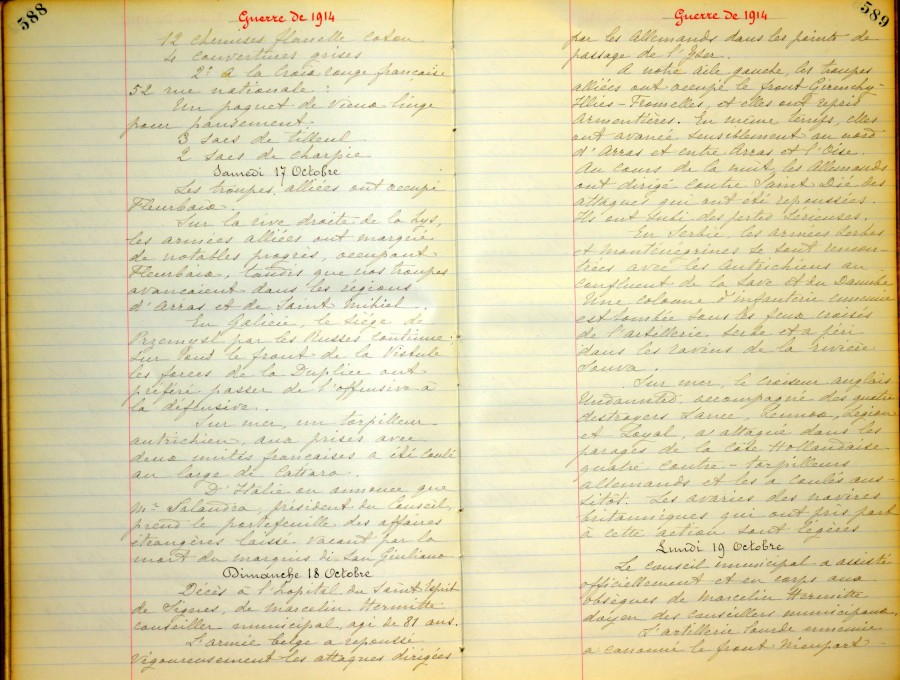 588
Guerre de 1914
12 chemises flanelle coton
4 couvertures grises
2° à la Croix rouge française
52 rue nationale :
Un paquet de vieux linge
pour pansement
3 sacs de tilleul
2 sacs de charpie
Samedi 17 Octobre
Les troupes alliées ont occupé
Fleurbaix.
Sur la rive droite de la Lys,
les armées alliées ont marqué
de notables progrès, occupant
Fleurbaix, tandis que nos troupes
avançaient dans les régions
d'Arras et de Saint Mihiel.
En Galicie, le siège de
Przemysl par les Russes continue.
Sur tout le front de la Vistule
les forces de la Duplice ont
préféré passer de l'offensive à
la défensive.
Sur mer, un torpilleur
autrichien, aux prises avec
deux unités françaises a été coulé
au large de Cattaro.
D'Italie on annonce que
Mr Salandra, président du Conseil,
prend le portefeuille des affaires
étrangères laissé vacant par la
mort du marquis di San Giuliano
Dimanche 18 Octobre
Décès à l'hôpital du Saint Esprit
de Signes, de Marcelin Hermitte
conseiller municipal, agé de 81 ans.
L'armée belge a repoussé
vigoureusement les attaques dirigées
589
Guerre de 1914
par les Allemands dans les points de
passage de l'Yser.
A notre aile gauche, les troupes
alliées ont occupé le front Givenchy-
Illies-Fromelles, et elles ont repris
Armentières. En même temps, elles
ont avancé sensiblement au nord
d'Arras et entre Arras et l'Oise.
Au cours de la nuit, les Allemands
ont dirigé contre Saint Dié des
attaques qui ont été repoussées.
Ils ont subi des pertes sérieuses.
En Serbie, les armées serbes
et monténégrines se sont
avec les Autrichiens au
confluent de la Save et du Danube
Une colonne d'infanterie ennemie
est tombée sous les feux croisés
de l'artillerie serbe et a péri
dans les ravins de la rivière
Sur mer, le croiseur anglais
Undaunted, accompagné des quatre
destroyers Lance, Lennox, Legion
et Loyal, a attaqué dans les
parages de la côte Hollandaise
quatre contre-torpilleurs
allemands et les a coulés aus-
sitôt. Les avaries des navires
britanniques qui ont pris part
à cette action sont légères
Lundi 19 Octobre
Le conseil municipal a assisté
officiellement et en corps aux
obsèques de Marcelin Hermitte
doyen des conseillers municipaux.
L'artillerie lourde ennemie
a canonné le front Nieuport -